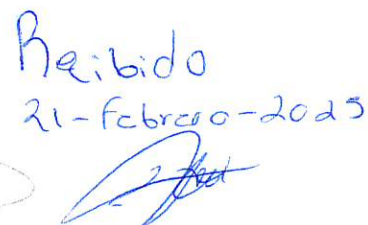 Recibido
21-Febrero-2025